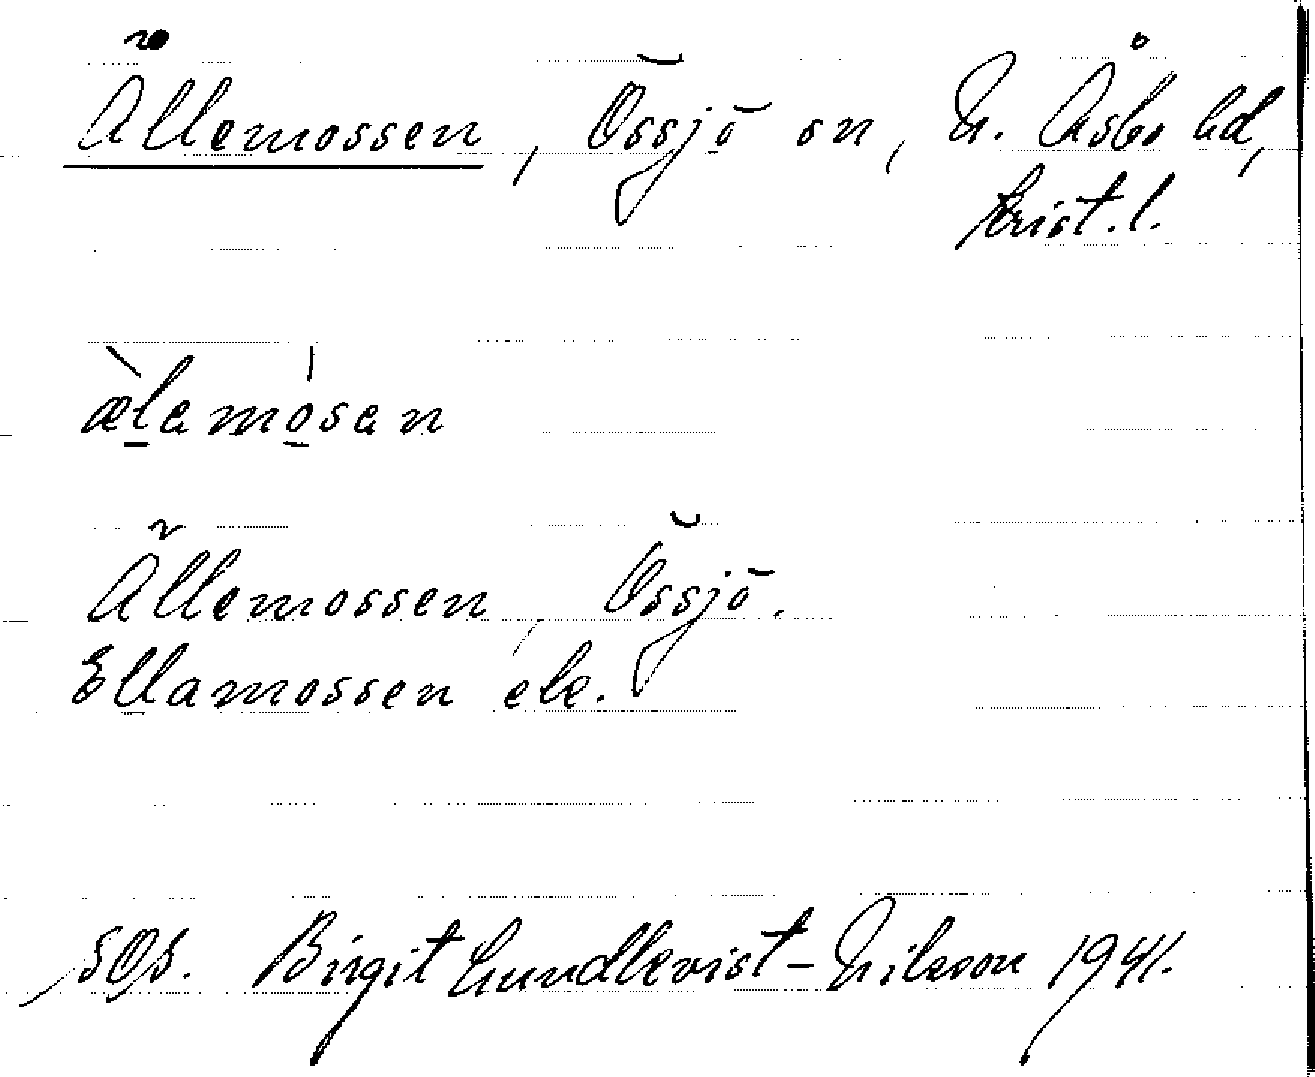 Ällemossen, Össjö sn, N. Åsbo hd,
Krist. l.
æ̀lamósan
Ällemossen, Össjö.
Ellamossen ele.
SOS. Birgit Lundkvist-Nilsson 1941.